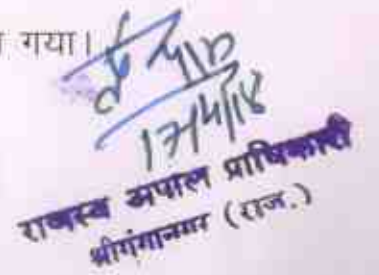 गया।
17/4/18
राजस्व अपील प्राधिकारी
श्रीगंगानगर (राज.)